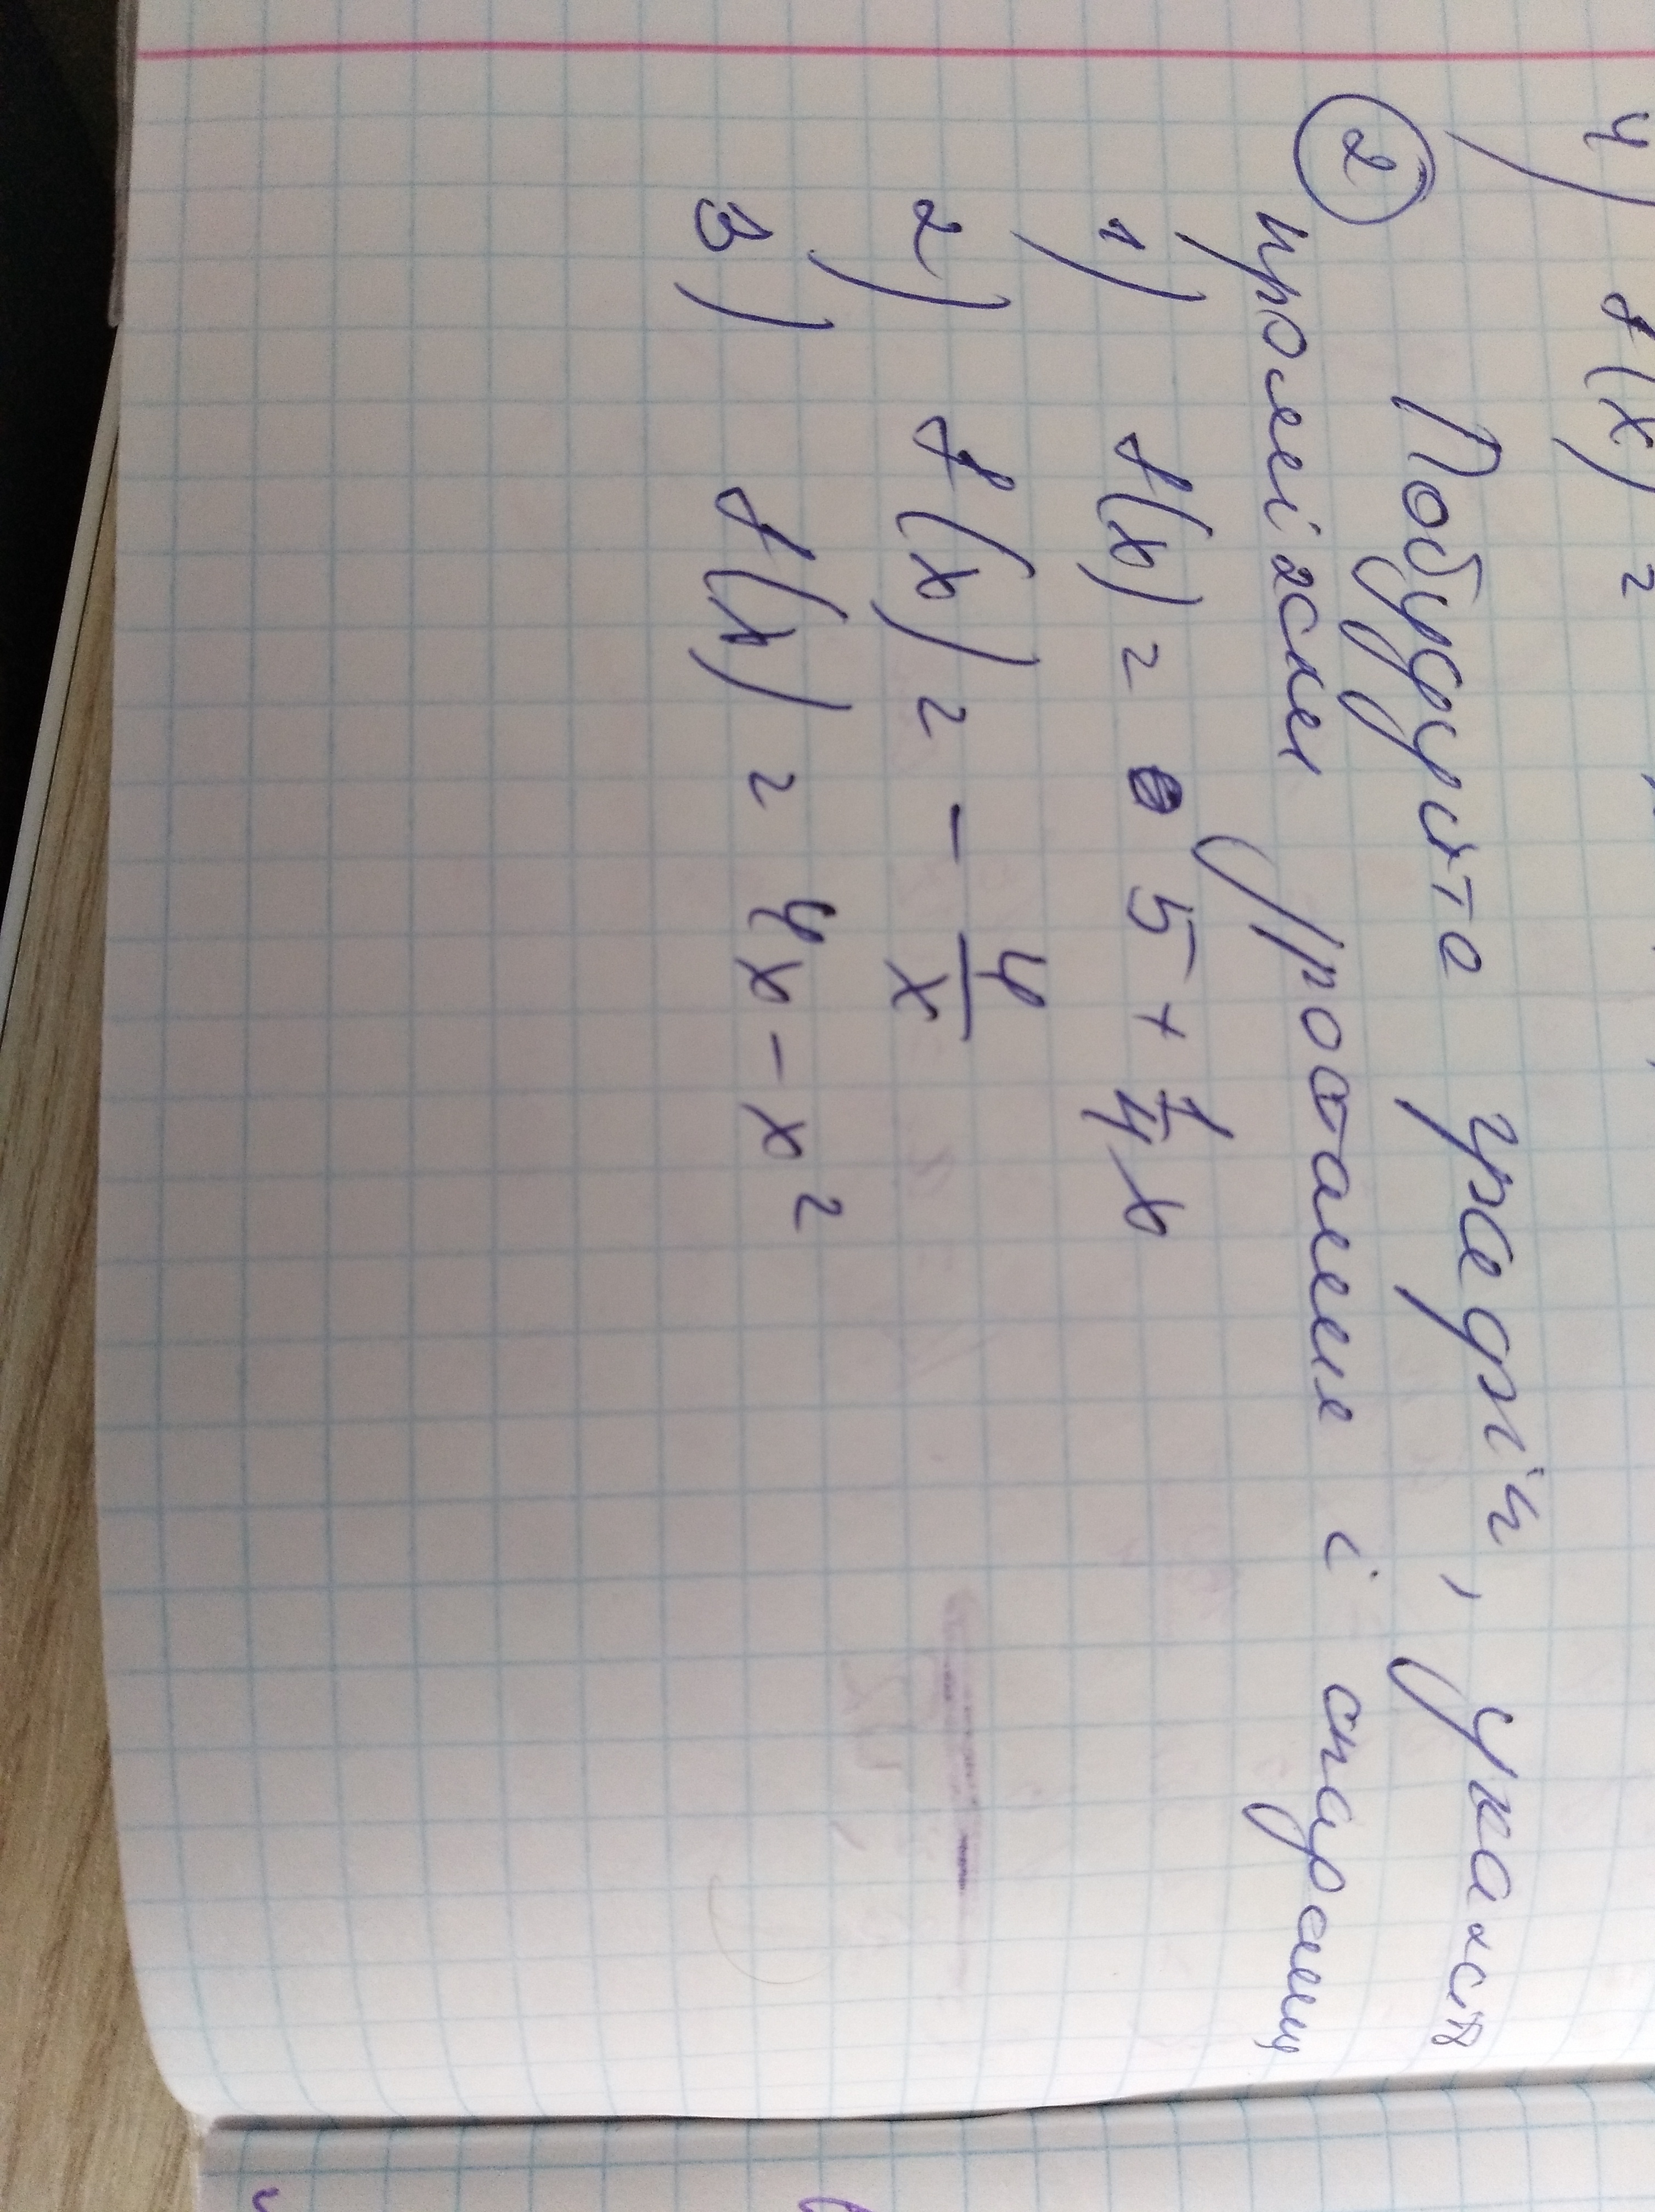 4) f(x) =
Побудуйте графік, укажіть
② проміжки зростання і спадання
1) f(x) = 5 + 1/4 x
2) f(x) = - 4/x
3) f(x) = 4x - x²